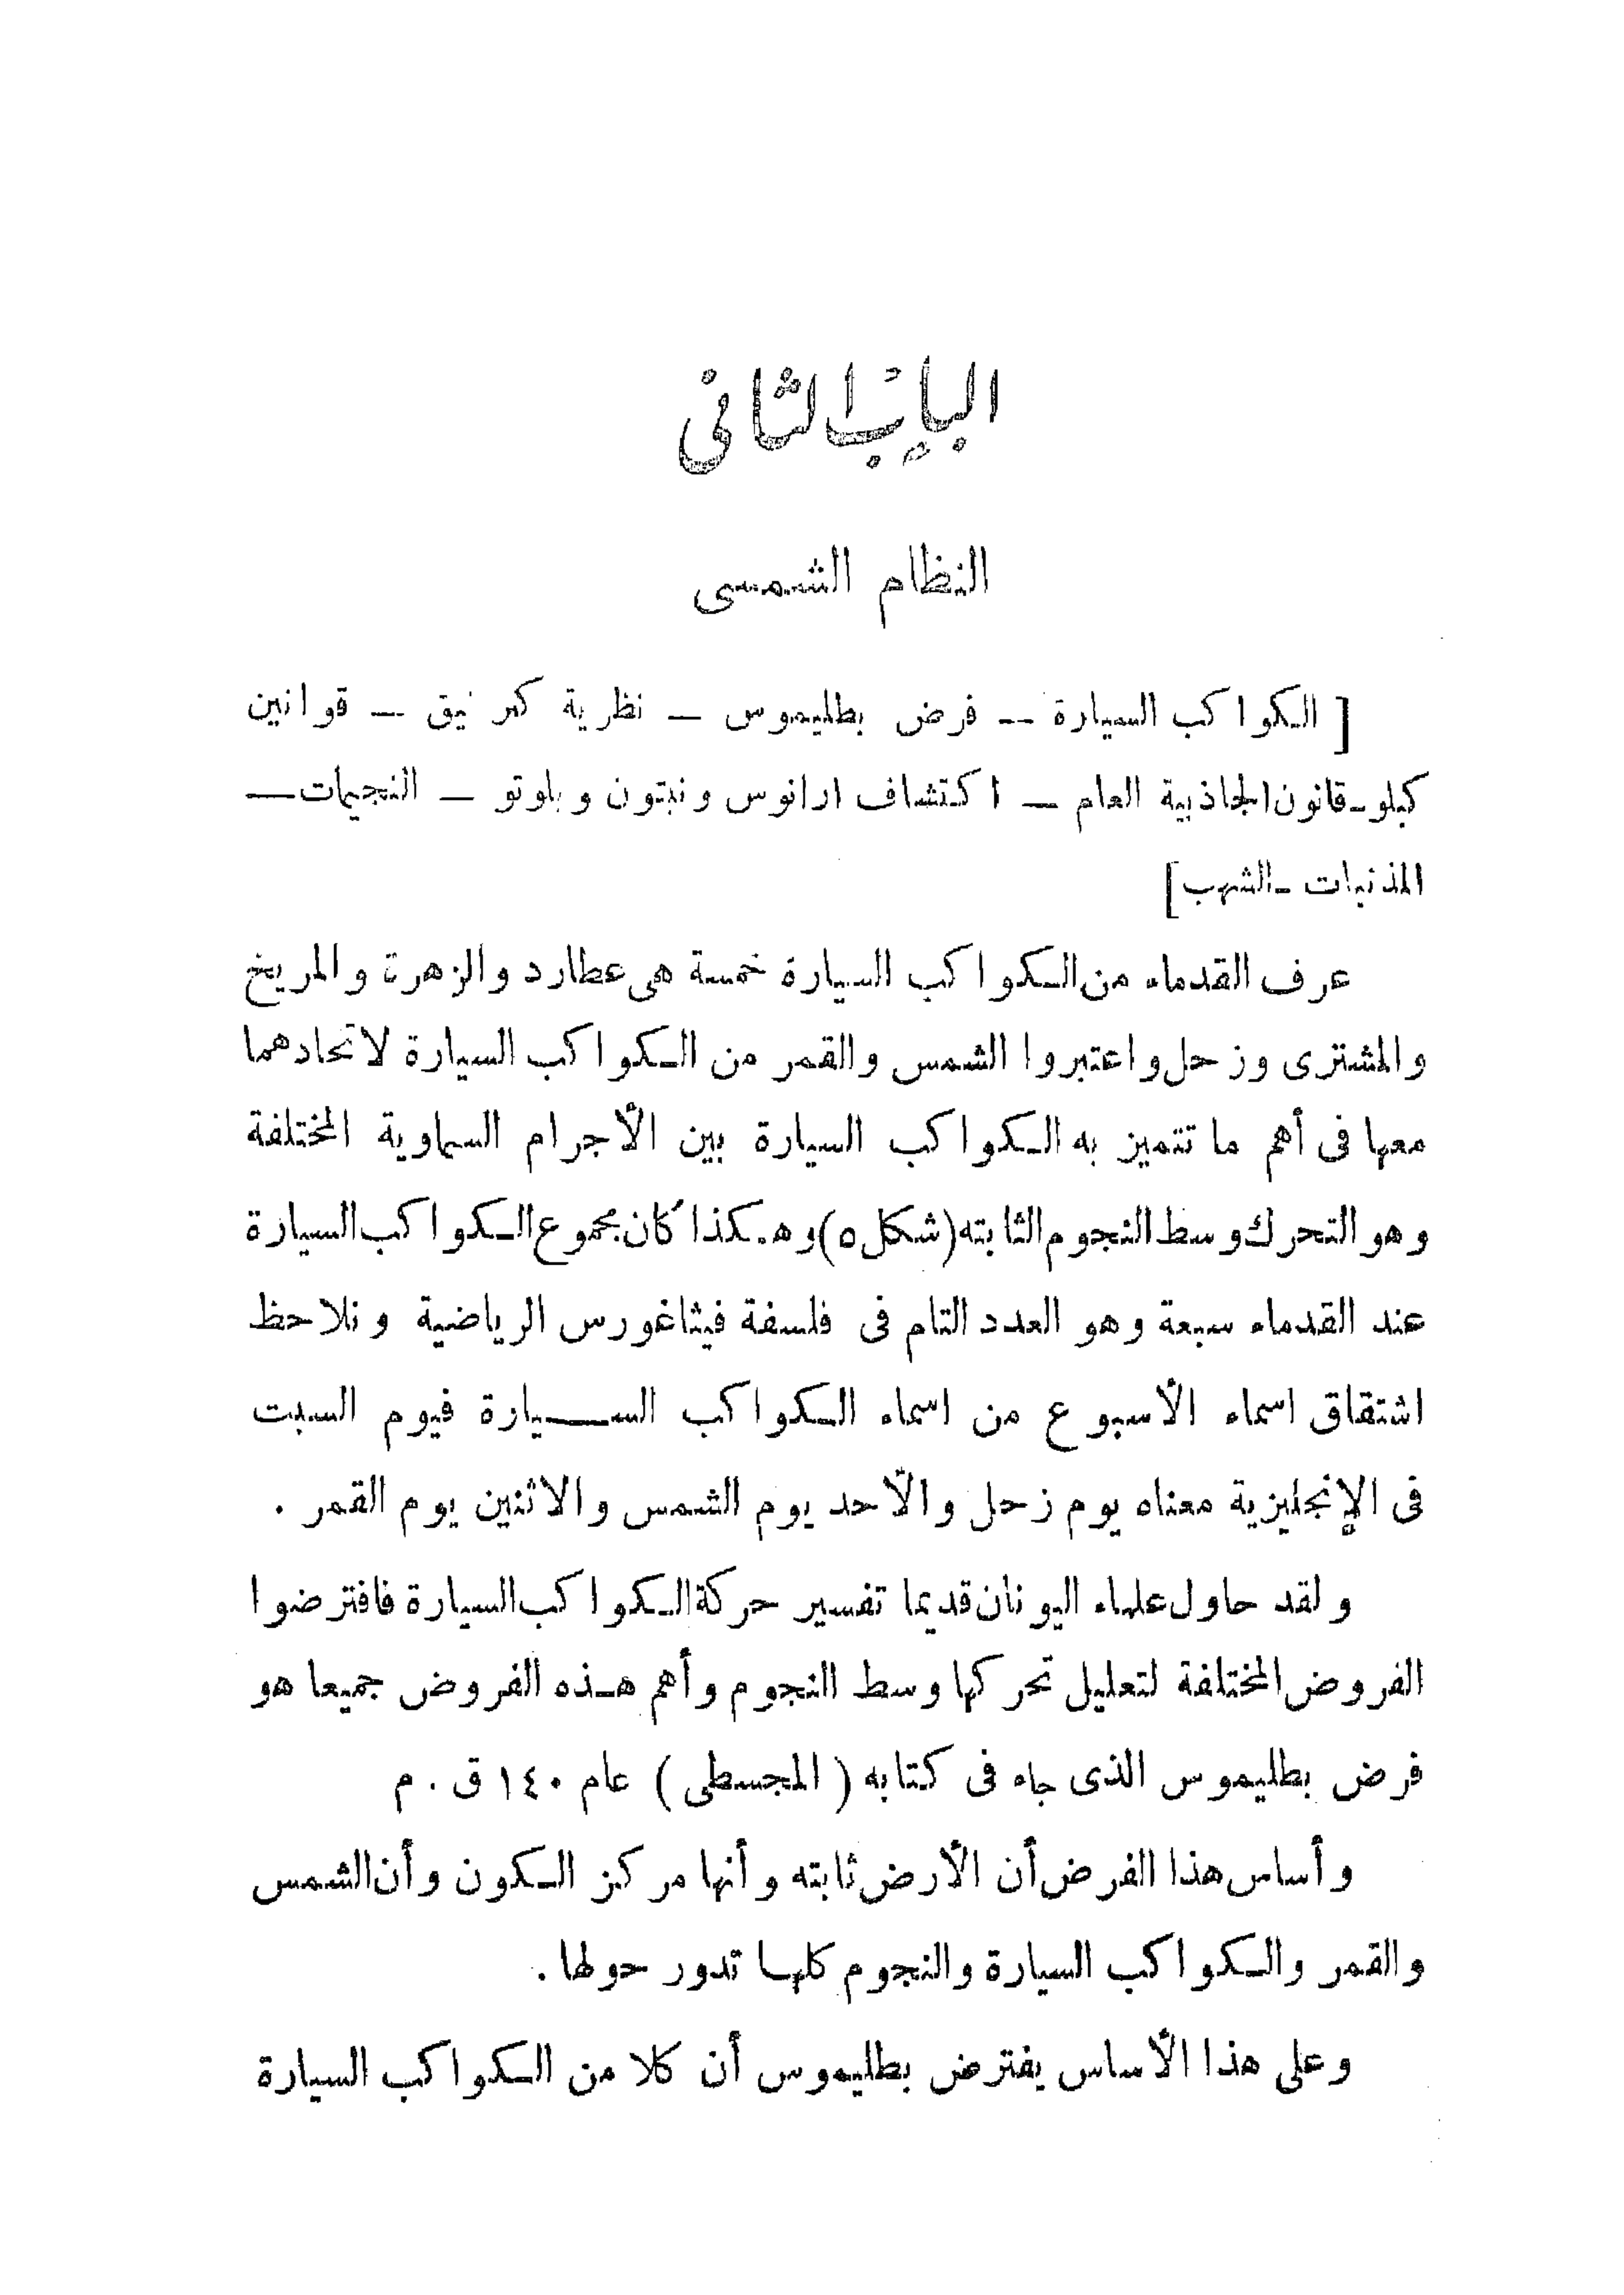 الباب الثانى
النظام الشمسى
[ الكواكب السيارة — فرض بطليموس — نظرية كبرنيق — قوانين
كبلو — قانون الجاذبية العام — اكتشاف ارانوس ونبتون وبلوتو — النجيمات —
المذنبات — الشهب ]
عرف القدماء من الكواكب السيارة خمسة هى عطارد والزهرة والمريخ
والمشترى وزحل واعتبروا الشمس والقمر من الكواكب السيارة لاتحادهما
معها فى أهم ما تتميز به الكواكب السيارة بين الأجرام السماوية المختلفة
وهو التحرك وسط النجوم الثابته (شكل ٥) وهكذا كان مجموع الكواكب السيارة
عند القدماء سبعة وهو العدد التام فى فلسفة فيثاغورس الرياضية ونلاحظ
اشتقاق اسماء الأسبوع من اسماء الكواكب السيارة فيوم السبت
فى الإنجليزية معناه يوم زحل والأحد يوم الشمس والاثنين يوم القمر .
ولقد حاول علماء اليونان قديما تفسير حركة الكواكب السيارة فافترضوا
الفروض المختلفة لتعليل تحركها وسط النجوم وأهم هذه الفروض جميعا هو
فرض بطليموس الذى جاء فى كتابه ( المجسطى ) عام ١٤٠ ق . م
وأساس هذا الفرض أن الأرض ثابته وأنها مركز الكون وأن الشمس
والقمر والكواكب السيارة والنجوم كلها تدور حولها .
وعلى هذا الأساس يفترض بطليموس أن كلا من الكواكب السيارة